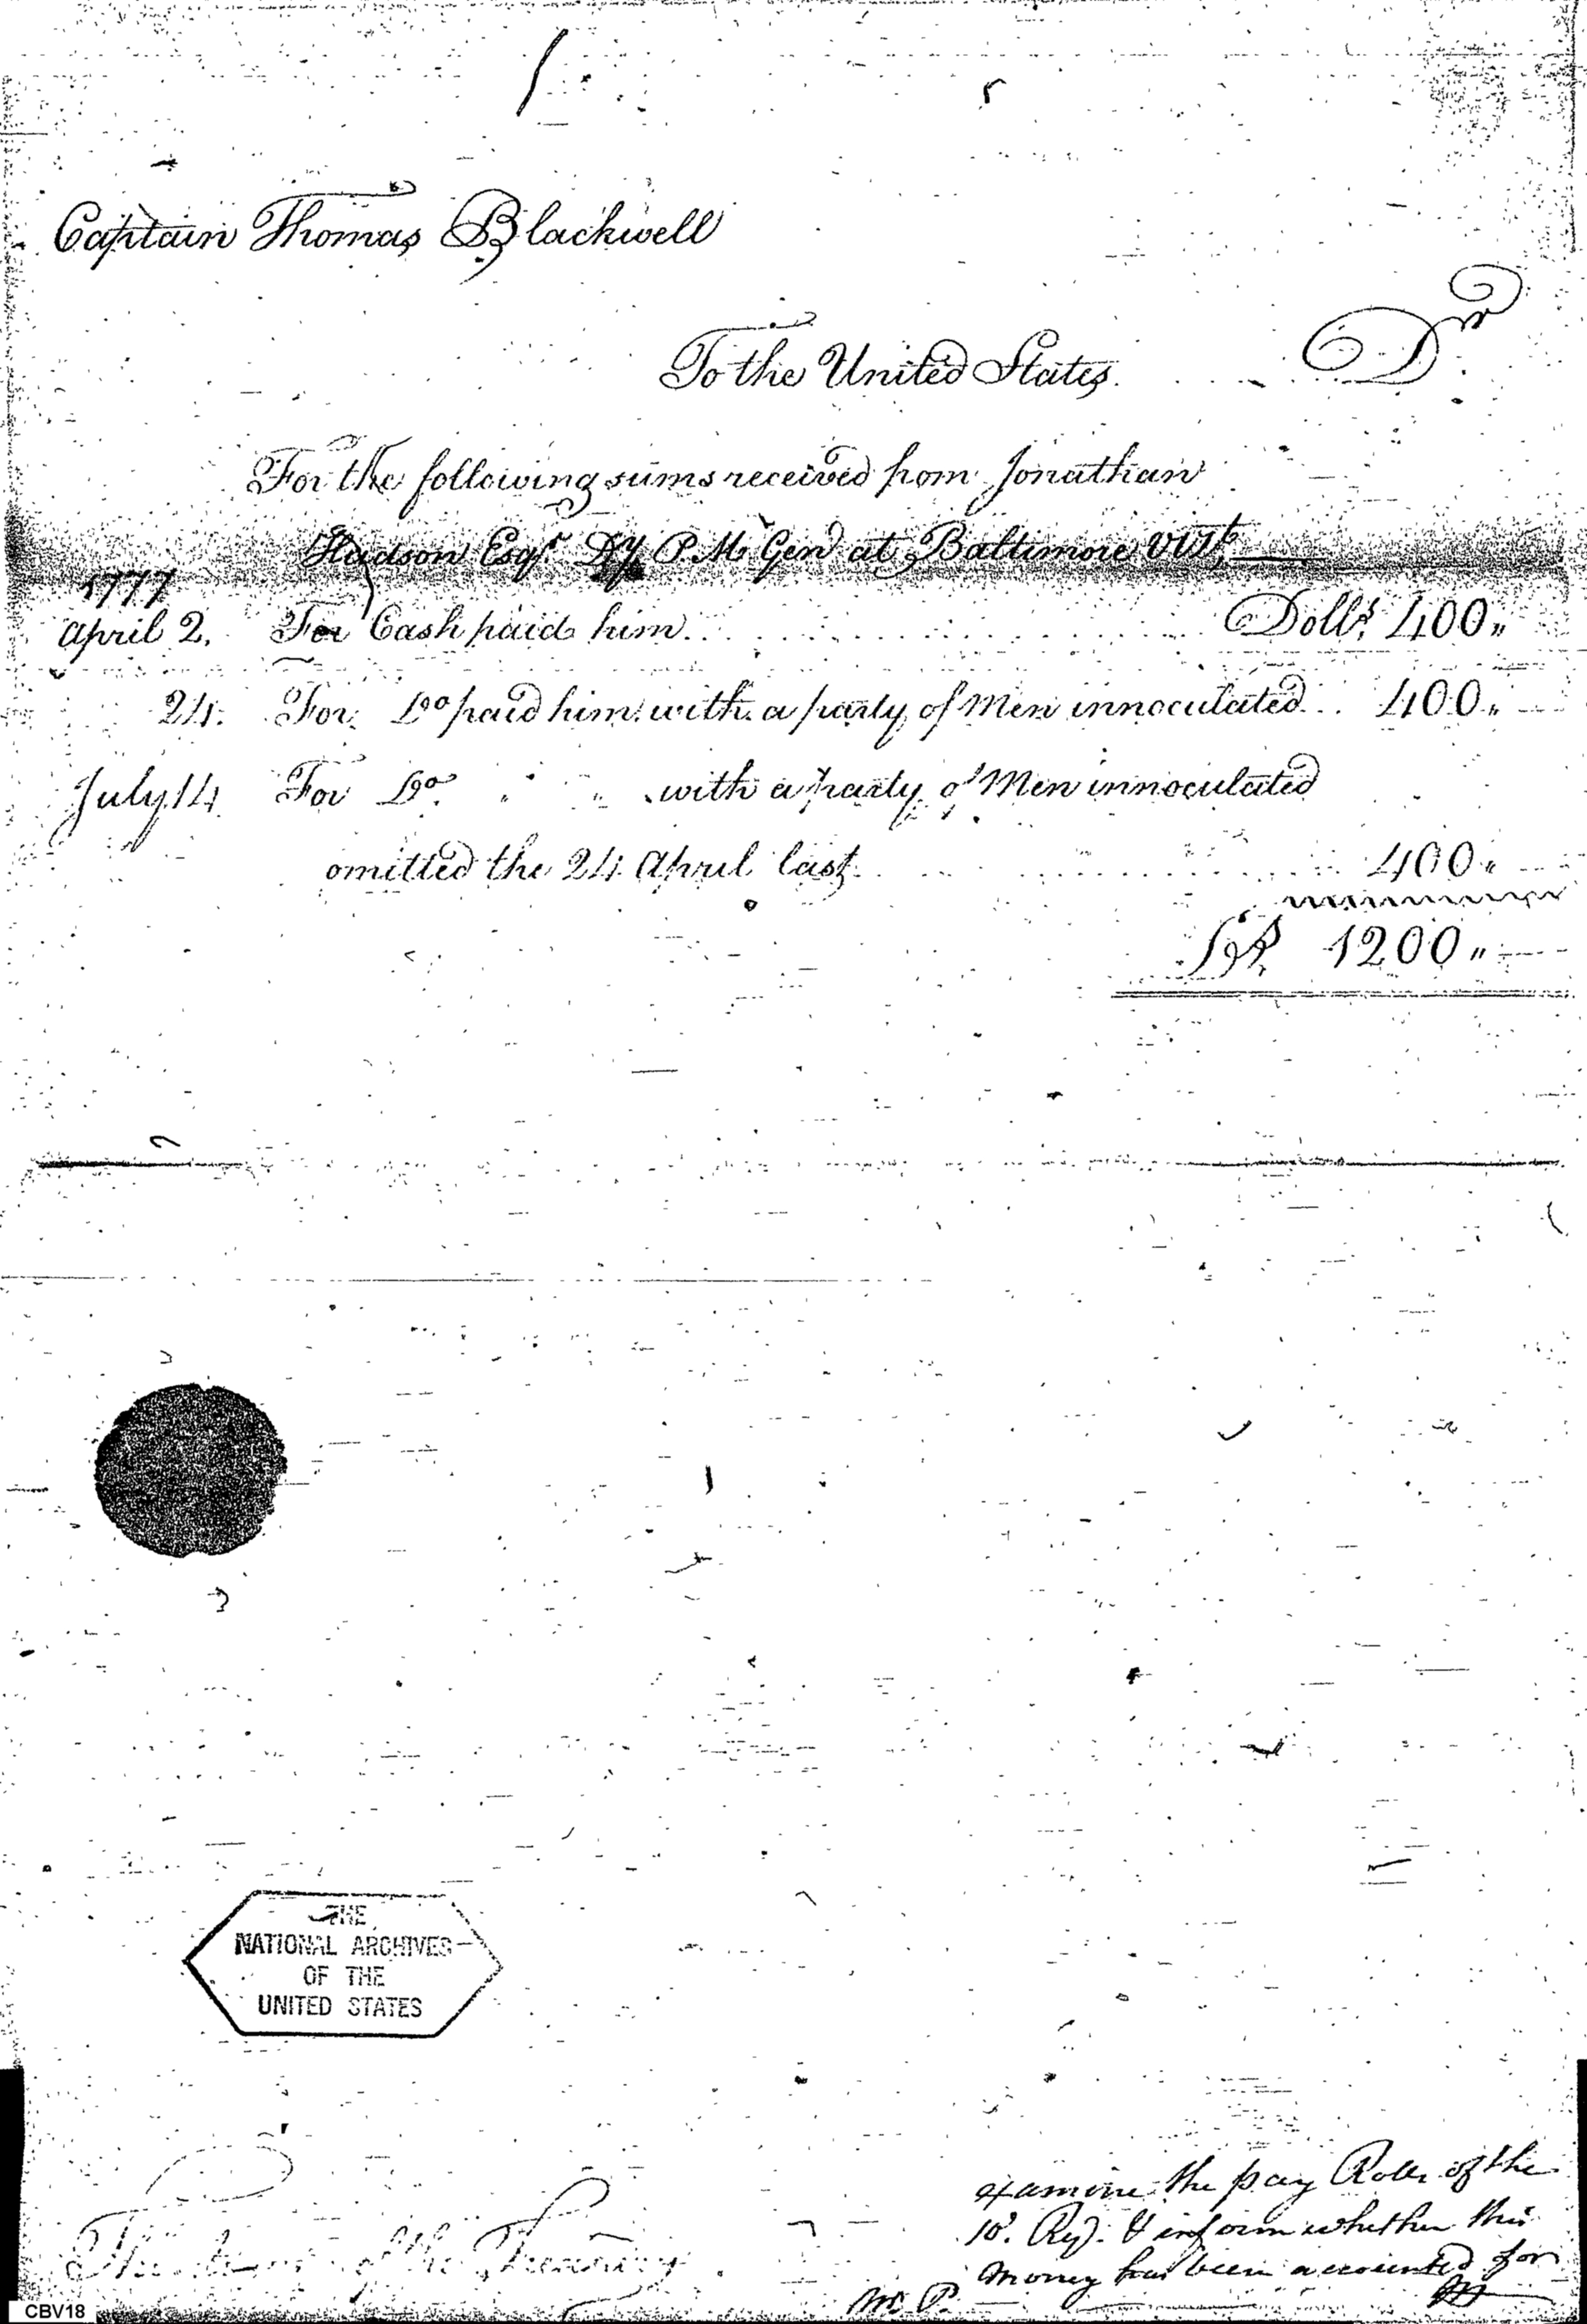 Captain Thomas Blackwell
To the United States. Dr
For the following sums received from Jonathan
Hudson Esqr. Dy P. M. Genl at Baltimore Vizt
1777
April 2. For Cash paid him Dolls. 400"
24. For Do paid him with a party of Men innoculated 400"
July 14 For Do. " " with a party of Men innoculated
omitted the 24 April last 400"
1200"
THE
NATIONAL ARCHIVES
OF THE
UNITED STATES
examine the pay Rolls of the
10. Regt. & inform whether this
money has been accounted for
of the Treasury
CBV18